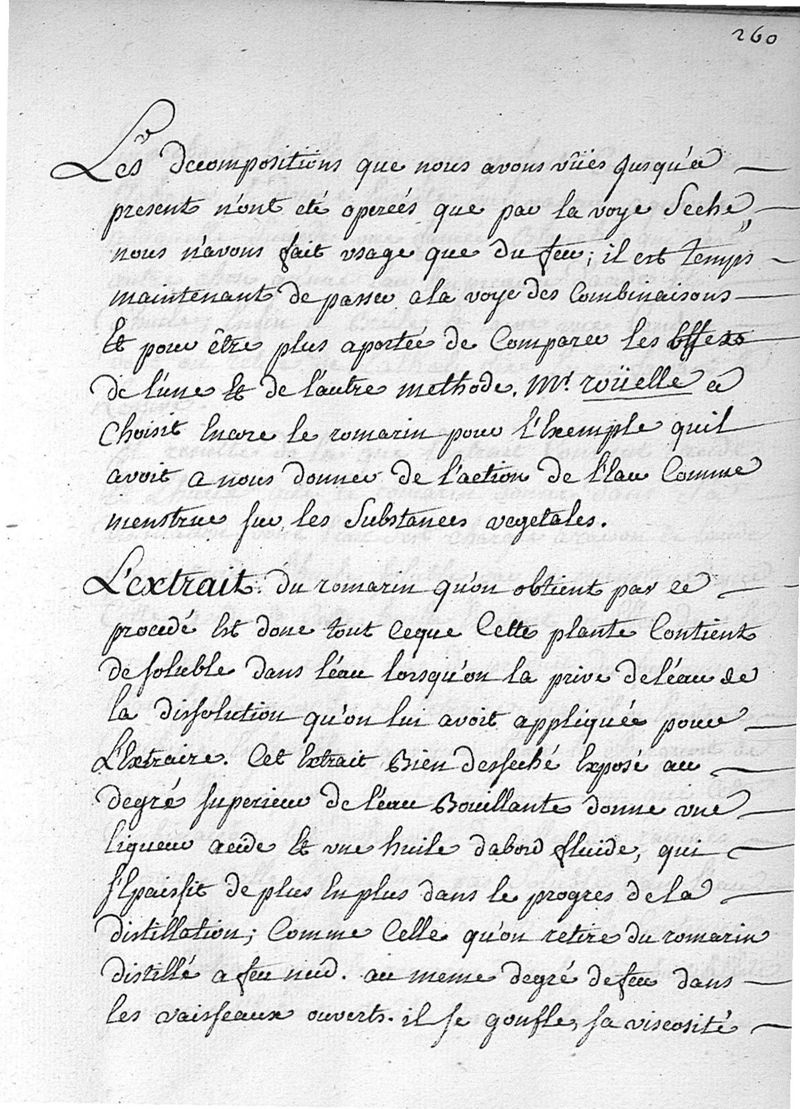 260
Les decompositions que nous avons vuës jusqu'a
present n'ont eté opereés que par la voye Seche,
nous n'avons fait usage que du feu; il est temps
maintenant de passer a la voye des Combinaisons
Et pour être plus aportée de Comparer les effets
de l'une Et de l'autre methode. Mr. roüelle a
Choisit Encore le romarin pour L'Exemple quil
avoit a nous donner de l'action de l'Eau Comme
menstrue sur les Substances vegetales.
L'extrait. du romarin qu'on obtient par ce
procedé Est donc tout ceque Cette plante Contient
de soluble dans l'éau lorsqu'on la prive de l'éau de
la dissolution qu'on lui avoit appliquée pour
L'Extraire. Cet Extrait Bien desseché Exposé au
degré superieur de l'éau Bouillante donne une
liqueur acide Et une huile d'abord fluide, qui
s'Epaissit de plus En plus dans le progres de la
distillation; Comme Celle qu'on retire du romarin
distillé a feu nud. au meme degré de feu dans
les vaisseaux ouverts. il se gonfle, sa viscosité